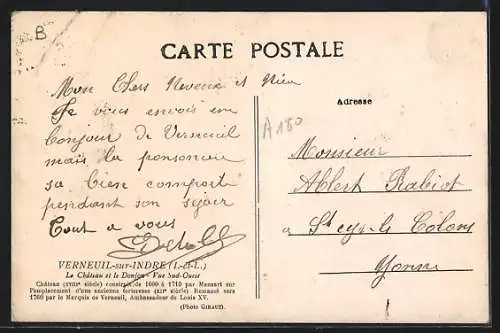 B
CARTE POSTALE
Mon Chers Neveux et Nièce
Je vous envois un
bonjour de Verneuil
mais la
sa bien comporté
pendant son séjour
Tout a vous
Adresse
A 180
Monsieur
Albert Rabiot
a St cyr le Colons
Yonne
VERNEUIL-sur-INDRE (I.-et-L.)
Le Château et le Donjon - Vue Sud-Ouest
Château (XVIIIe siècle) construit de 1600 à 1710 par Mansart sur
l'emplacement d'une ancienne forteresse (XIIe siècle) Remanié vers
1760 par le Marquis de Verneuil, Ambassadeur de Louis XV.
(Photo GIRAUT)